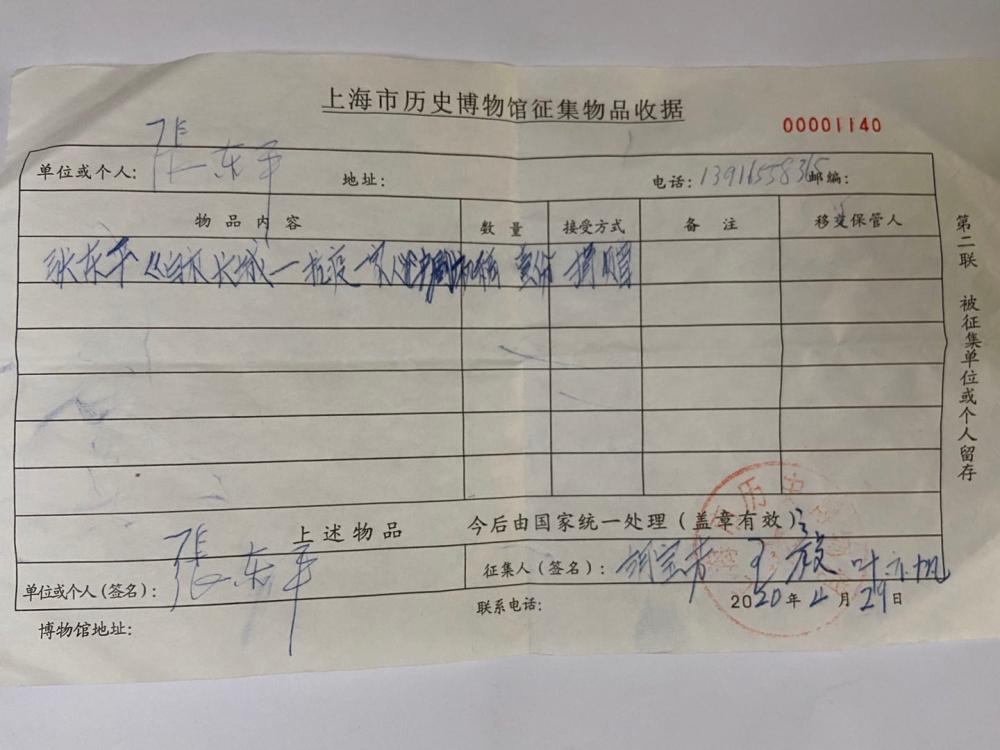 上海市历史博物馆征集物品收据
00001140
单位或个人: 張东平 地址: 电话: 邮编:
物品内容 数量 接受方式 备注 移交保管人
张东平《白衣长城—抗疫 壹份 捐赠
上述物品 今后由国家统一处理(盖章有效)
单位或个人(签名): 張东平 征集人(签名):
博物馆地址: 联系电话: 2020年4月29日
第二联 被征集单位或个人留存